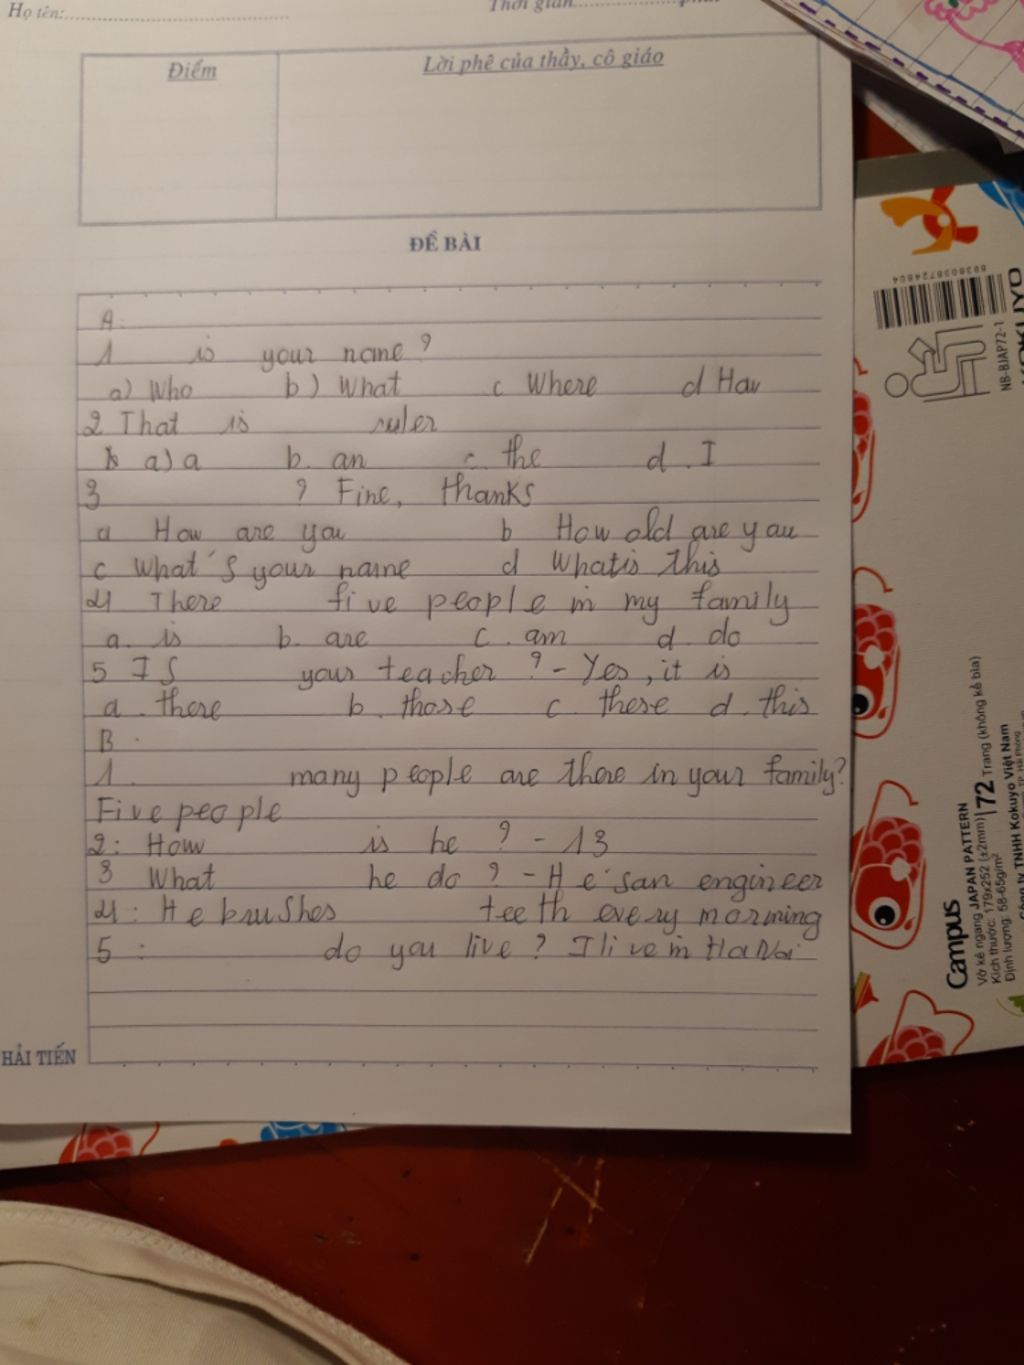 Họ tên:
Thời gian
Điểm
Lời phê của thầy, cô giáo
ĐỀ BÀI
A:
1 is your name?
a) Who b) What c Where d Hau
2 That is ruler
a) a b. an c. the d. I
3 ? Fine, thanks
a How are you b How old are you
c What's your name d What is this
4 There five people in my family
a. is b. are c. am d. do
5 Is your teacher ? - Yes, it is
a. there b. those c. these d. this
B.
1. many people are there in your family?
Five people
2: How is he ? - 13
3 What he do ? - He's an engineer
4: He brushes teeth every morning
5: do you live? I live in Ha Noi
HẢI TIẾN
8936038724804
NB-BJAP72-1
KOKUYO
Campus
Vở kẻ ngang JAPAN PATTERN
Kích thước: 179x252 (±2mm)
Định lượng: 58-65g/m²
72 Trang (không kẻ bìa)
Công ty TNHH Kokuyo Việt Nam